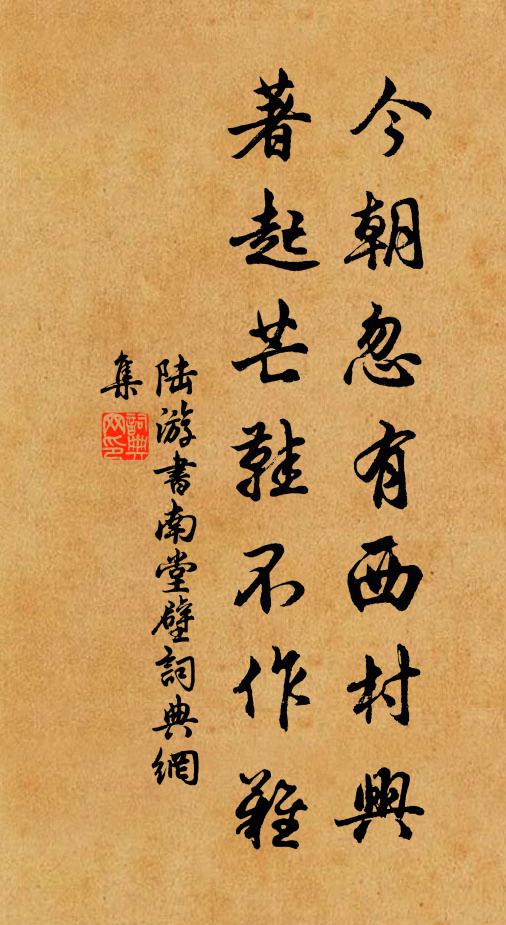 今朝忽有西村興
著起芒鞋不作難
陸游書南堂壁詞典網
集
詞典网印